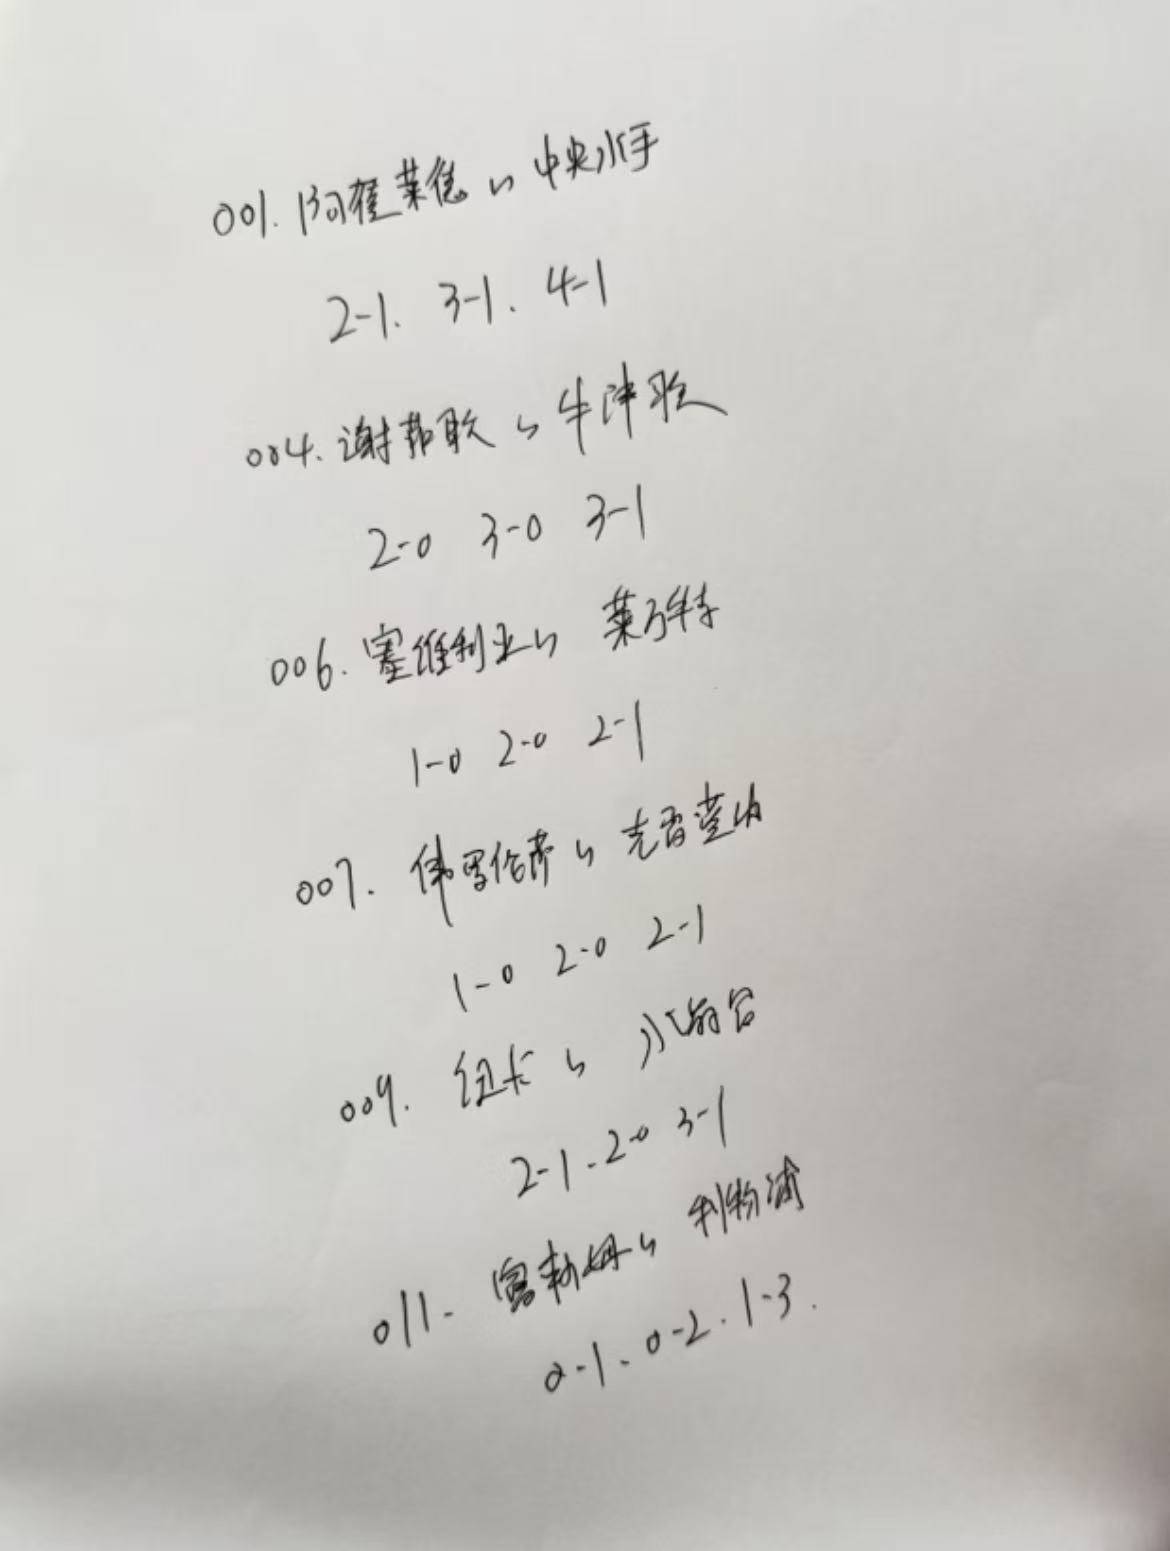 001. 阿程莱德 vs 中央水手
2-1. 3-1. 4-1
004. 谢菲联 vs 牛津联
2-0 3-0 3-1
006. 塞维利亚 vs 莱万特
1-0 2-0 2-1
007. 佛罗伦萨 vs 克雷莫纳
1-0 2-0 2-1
009. 纽卡 vs
2-1. 2-0 3-1
011. 富勒姆 vs 利物浦
0-1. 0-2. 1-3.